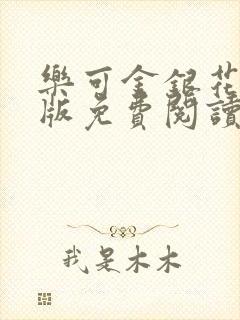 樂可金銀花
版免費閱讀
我是木木